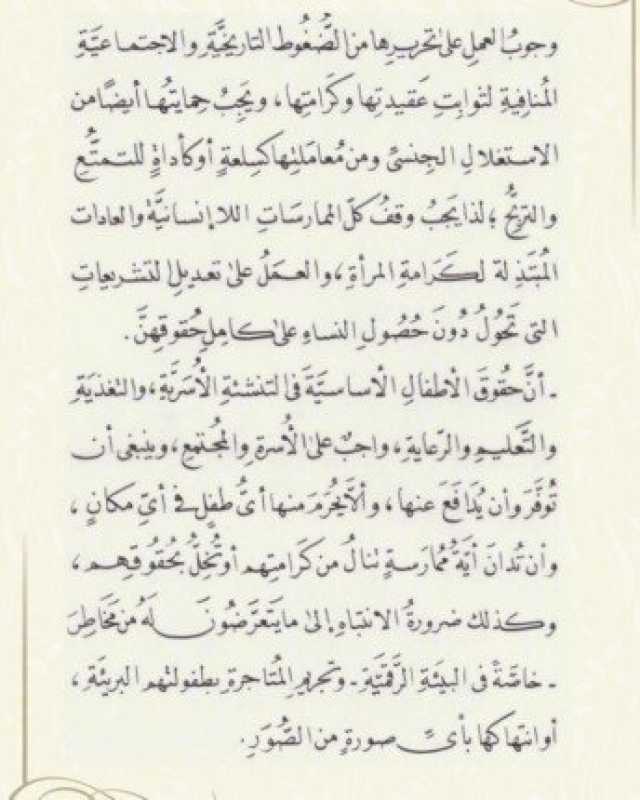 وجوبُ العملِ على تحريرِها من الضُّغوطِ التاريخيَّةِ والاجتماعيَّةِ
المُنافِيةِ لثوابِتِ عَقيدتِها وكَرامتِها، ويَجِبُ حِمايتُها أيضًا من
الاستغلالِ الجِنسىِّ ومن مُعامَلتِها كسِلعةٍ أو كأداةٍ للتمتُّعِ
والتربُّحِ؛ لذا يَجبُ وقفُ كلِّ الممارَساتِ اللاإنسانيَّةِ والعادات
المُبتَذِلة لكَرَامةِ المرأةِ، والعمَلُ على تعديلِ التشريعاتِ
التى تَحُولُ دُونَ حُصُولِ النساءِ على كامِلِ حُقوقِهنَّ.
- أنَّ حُقوقَ الأطفالِ الأساسيَّةَ فى التنشئةِ الأُسَريَّةِ، والتغذيةِ
والتَّعليمِ والرِّعايةِ، واجبٌ على الأُسرةِ والمُجتمعِ، وينبغى أن
تُوفَّرَ وأن يُدَافَعَ عنها، وألَّا يُحرَمَ منها أىُّ طفلٍ فى أىِّ مكانٍ،
وأن تُدانَ أيَّةُ مُمارَسةٍ تنالُ من كَرامتِهم أو تُخِلُّ بحُقُوقِهم،
وكذلك ضرورةُ الانتباهِ إلى ما يَتَعرَّضُونَ لهُ من مَخَاطِرَ
- خاصَّةً فى البيئةِ الرَّقميَّةِ - وتجريمِ المُتاجرةِ بطفولتهم البريئةِ،
أو انتهاكها بأىِّ صورةٍ من الصُّوَرِ.